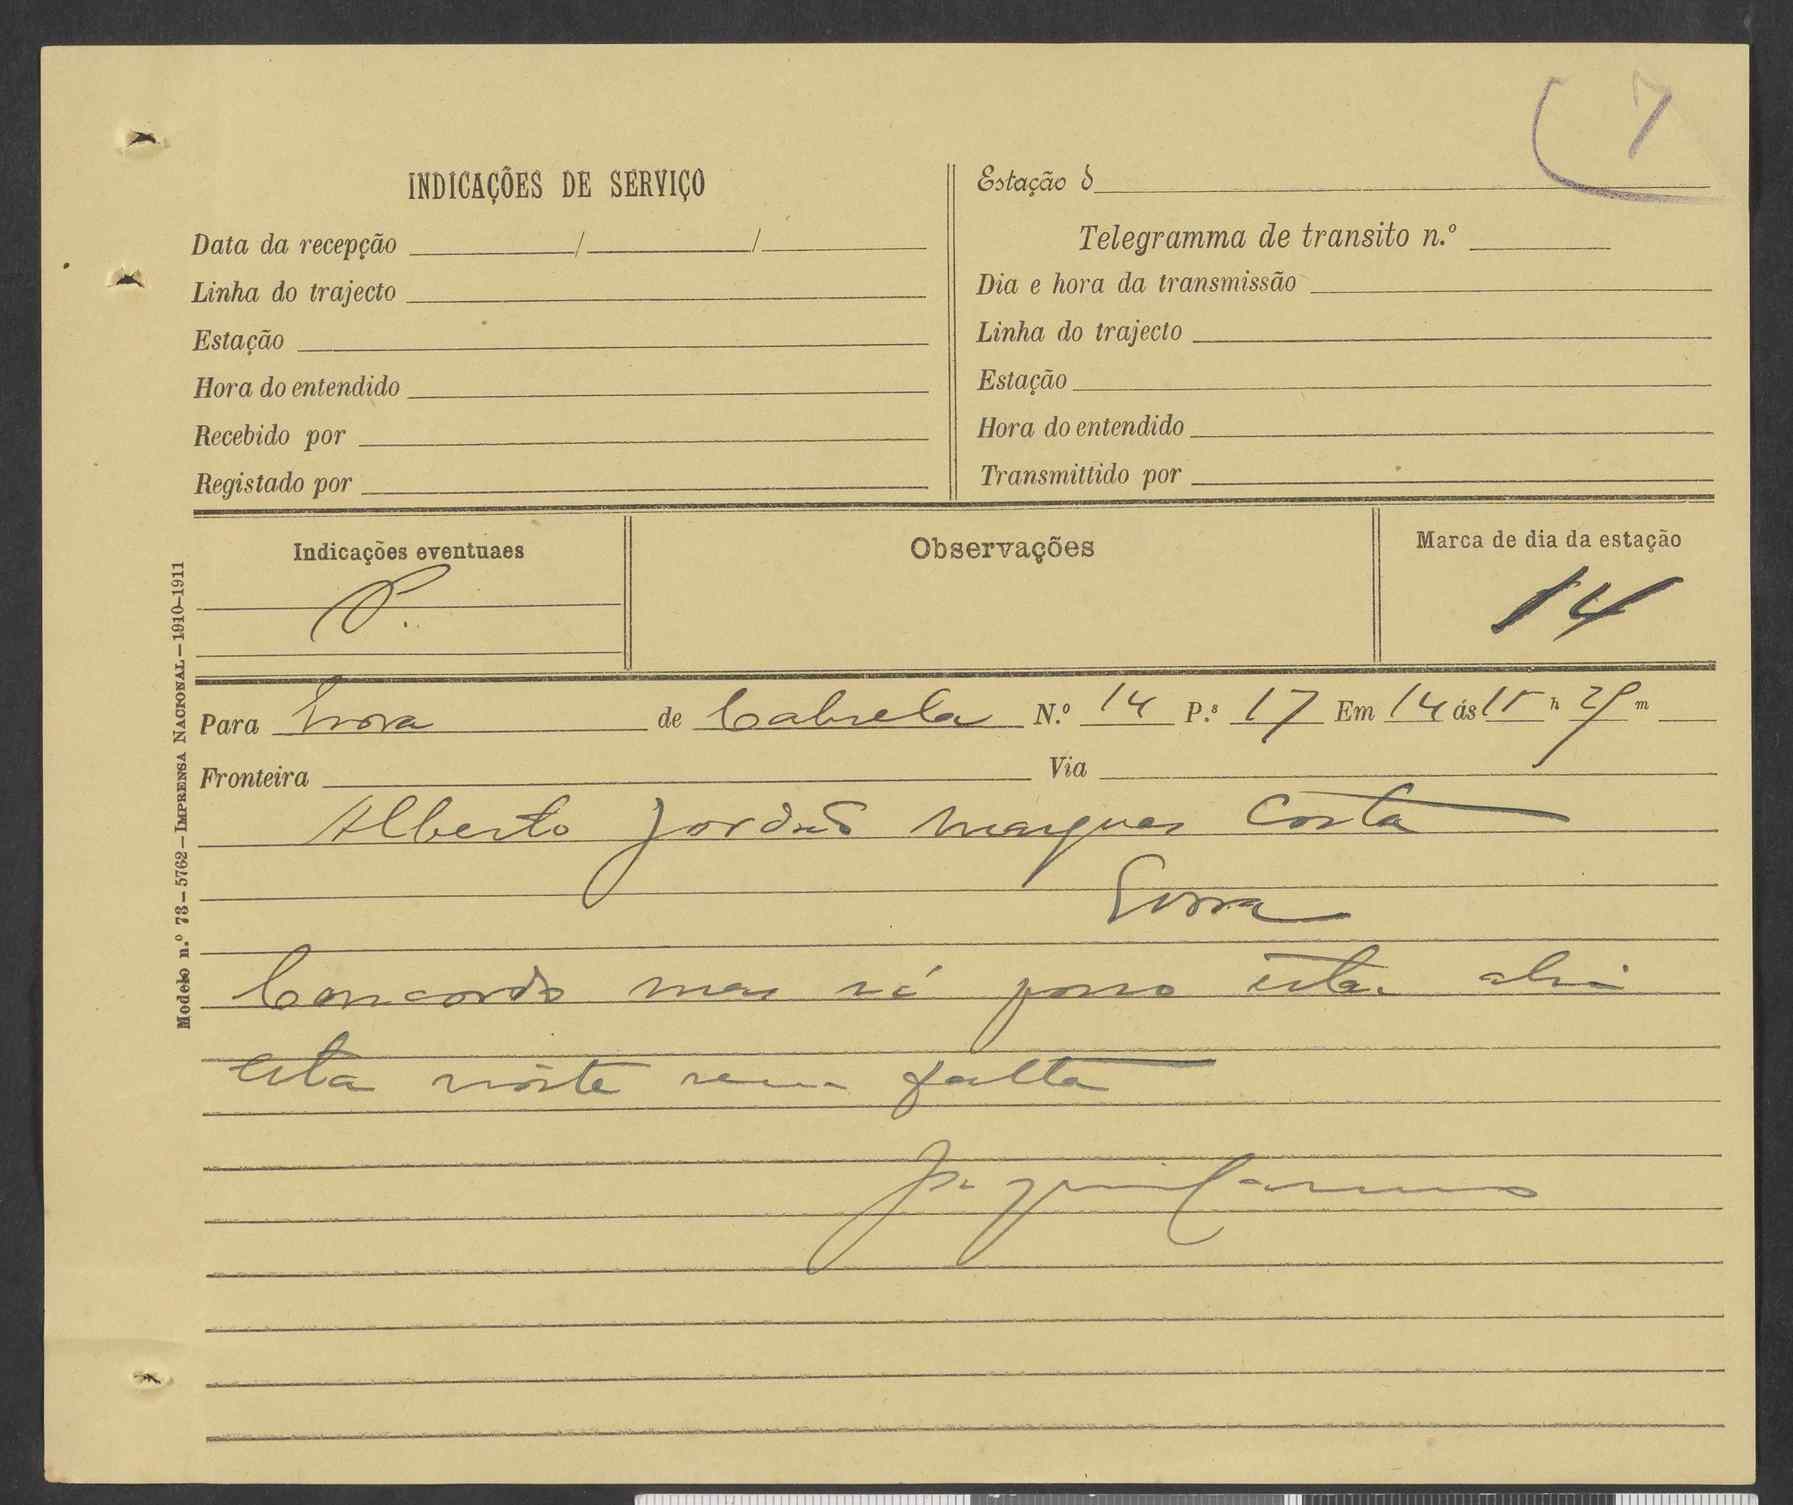 7
INDICAÇÕES DE SERVIÇO
Data da recepção / /
Linha do trajecto
Estação
Hora do entendido
Recebido por
Registado por
Estação d
Telegramma de transito n.º
Dia e hora da transmissão
Linha do trajecto
Estação
Hora do entendido
Transmittido por
Indicações eventuaes
P.
Observações
Marca de dia da estação
14
Modelo n.º 73—5762—IMPRENSA NACIONAL—1910-1911
Para Evora de Cabrela N.º 14 P.s 17 Em 14 ás 15 h m
Fronteira Via
Alberto Jordão Marques Costa
Evora
Concordo mas só posso estar ahi
esta noite sem falta